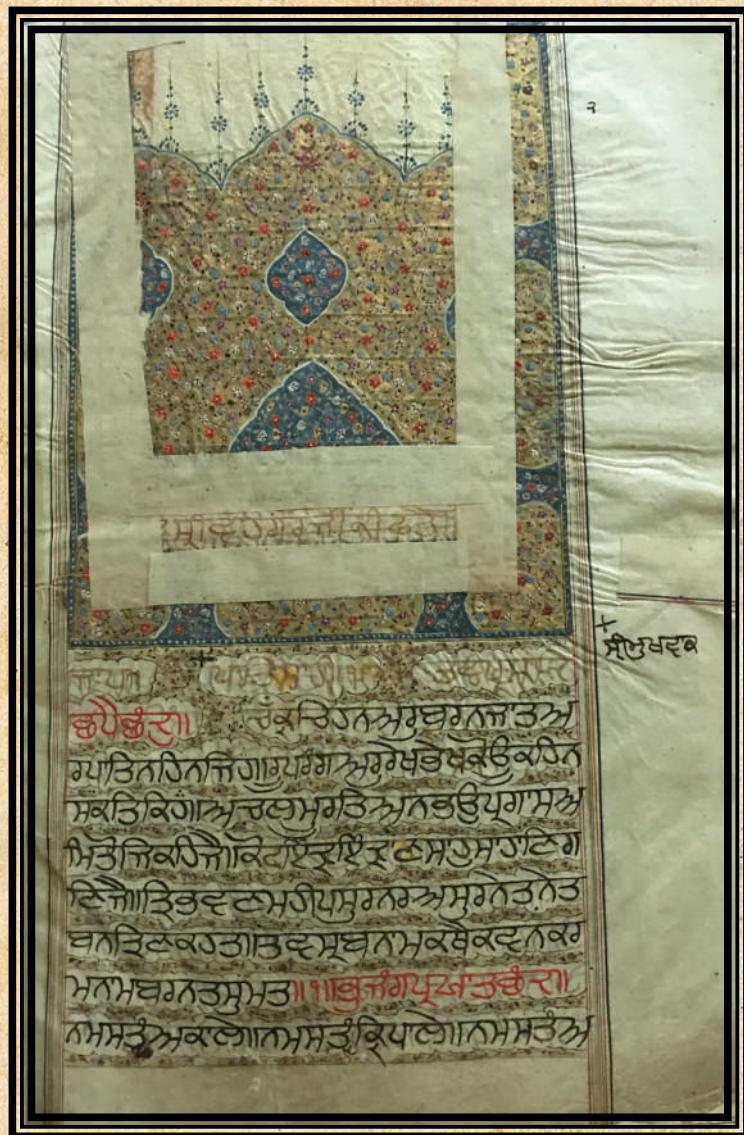 ੨
ਸ੍ਰੀਮੁਖਵਾਕ
ਪਾਤਿਸਾਹੀ ੧੦
ਛਪੈਛੰਦ॥ ਚਕ੍ਰਚਿਹਨਅਰੁਬਰਨਜਾਤਅ
ਰੁਪਾਤਿਨਹਿਨਜਿਹ॥ਰੂਪਰੰਗਅਰੁਰੇਖਭੇਖਕੋਊਕਹਿਨ
ਸਕਤਿਕਿਹ॥ਅਚਲਮੂਰਤਿਅਨਭਉਪ੍ਰਗਾਸਅ
ਮਿਤੋਜਿਕਹਿਜੈ॥ਕੋਟਇੰਦ੍ਰਇੰਦ੍ਰਾਣਸਾਹੁਸਾਹਾਣਿਗ
ਣਿਜੈ॥ਤ੍ਰਿਭਵਣਮਹੀਪਸੁਰਨਰਅਸੁਰਨੇਤਨੇਤ
ਬਨਤ੍ਰਿਣਕਹਤ॥ਤਵਸ੍ਰਬਨਾਮਕਥੈਕਵਨਕਰ
ਮਨਾਮਬਰਨਤਸੁਮਤ॥੧॥ਭੁਜੰਗਪ੍ਰਯਾਤਛੰਦ॥
ਨਮਸਤੰਅਕਾਲੇ॥ਨਮਸਤੰਕ੍ਰਿਪਾਲੇ॥ਨਮਸਤੰਅ